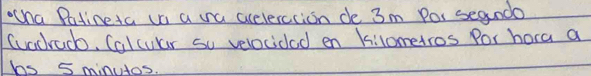 •Una Patineta va a una aceleración de 3m Por segundo
Cuadrado. Calcular su velocidad en kilometros Por hora a
los 5 minutos.